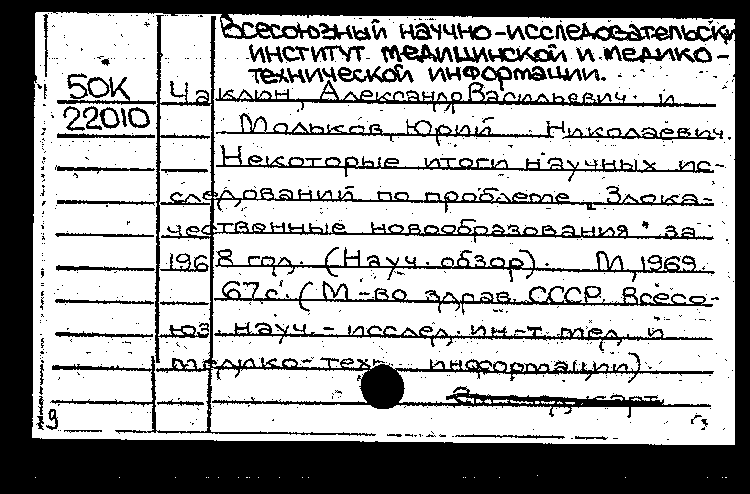 Всесоюзный научно-исследовательски
институт медицинской и медико-
технической информации.
50К
22010
Чаклин, Александр Васильевич и
Мольков, Юрий Николаевич.
Некоторые итоги научных ис-
следований по проблеме „Злока-
чественные новообразования" за
1968 год. (Науч. обзор). М, 1969.
67 с. (М-во здрав. СССР. Всесо-
юз. науч.-исслед. ин-т мед. и
медико-техн. информации).
9